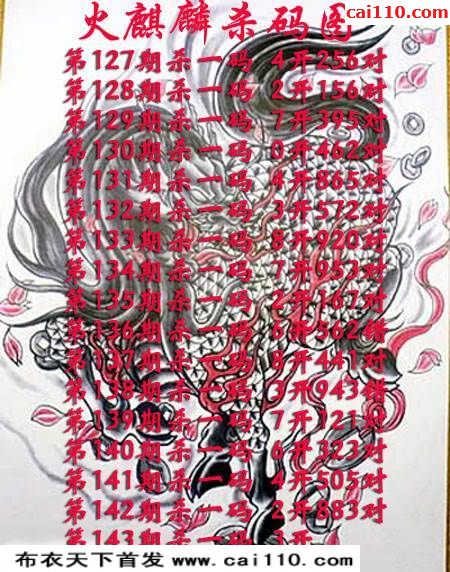 cai110.com
火麒麟杀码图
第127期杀一码 4开256对
第128期杀一码 2开156对
第129期杀一码 7开395对
第130期杀一码 0开462对
第131期杀一码 4开865对
第132期杀一码 3开572对
第133期杀一码 8开920对
第134期杀一码 7开953对
第135期杀一码 2开167对
第136期杀一码 6开562错
第137期杀一码 8开441对
第138期杀一码 3开943错
第139期杀一码 7开121对
第140期杀一码 6开323对
第141期杀一码 4开505对
第142期杀一码 2开883对
第143期杀一码 3开
布衣天下首发 www.cai110.com